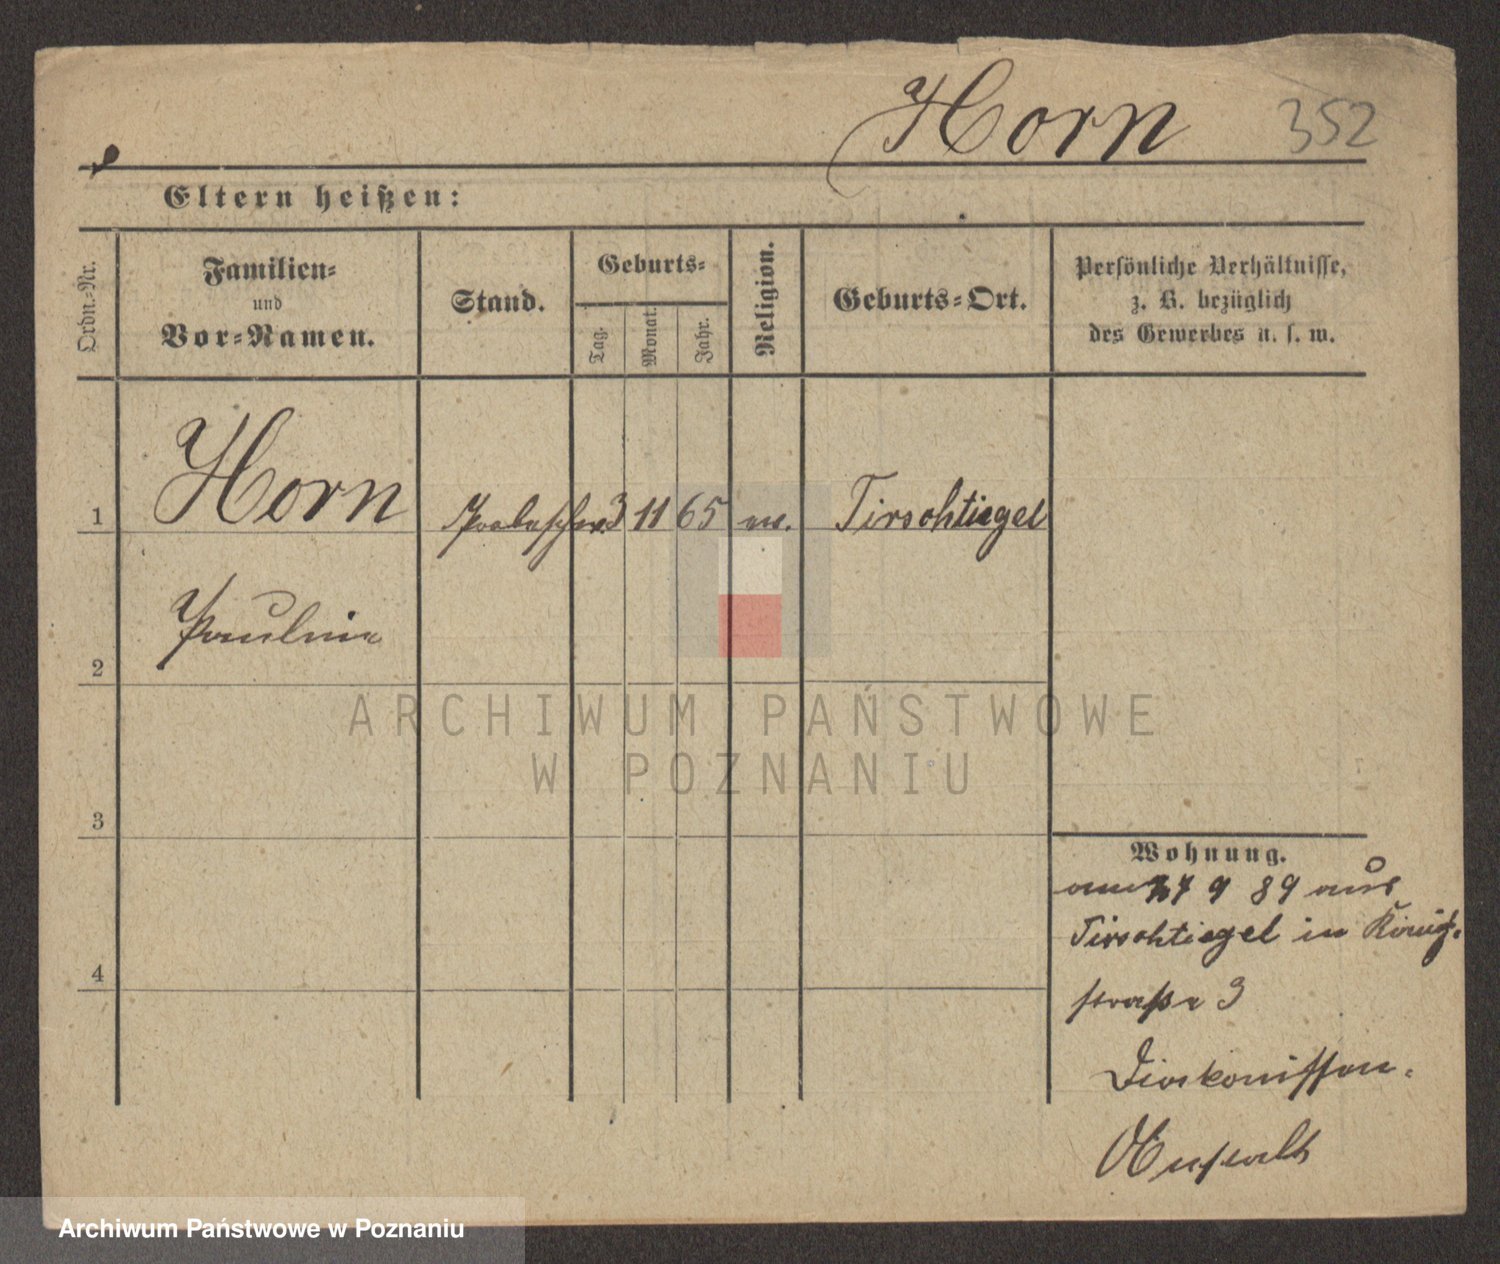 Horn 352
Eltern heißen:
Ordn.-Nr.
Familien-
und
Vor-Namen.
Stand.
Geburts-
Tag.
Monat.
Jahr.
Religion.
Geburts-Ort.
Persönliche Verhältnisse,
z. B. bezüglich
des Gewerbes u. s. w.
1 Horn 3 11 65 ev. Tirschtiegel
Pauline
2
3
4
ARCHIWUM PAŃSTWOWE
W POZNANIU
Wohnung.
am 27 9 89 aus
Tirschtiegel in König-
straße 3
Diakonissen-
Anstalt
Archiwum Państwowe w Poznaniu